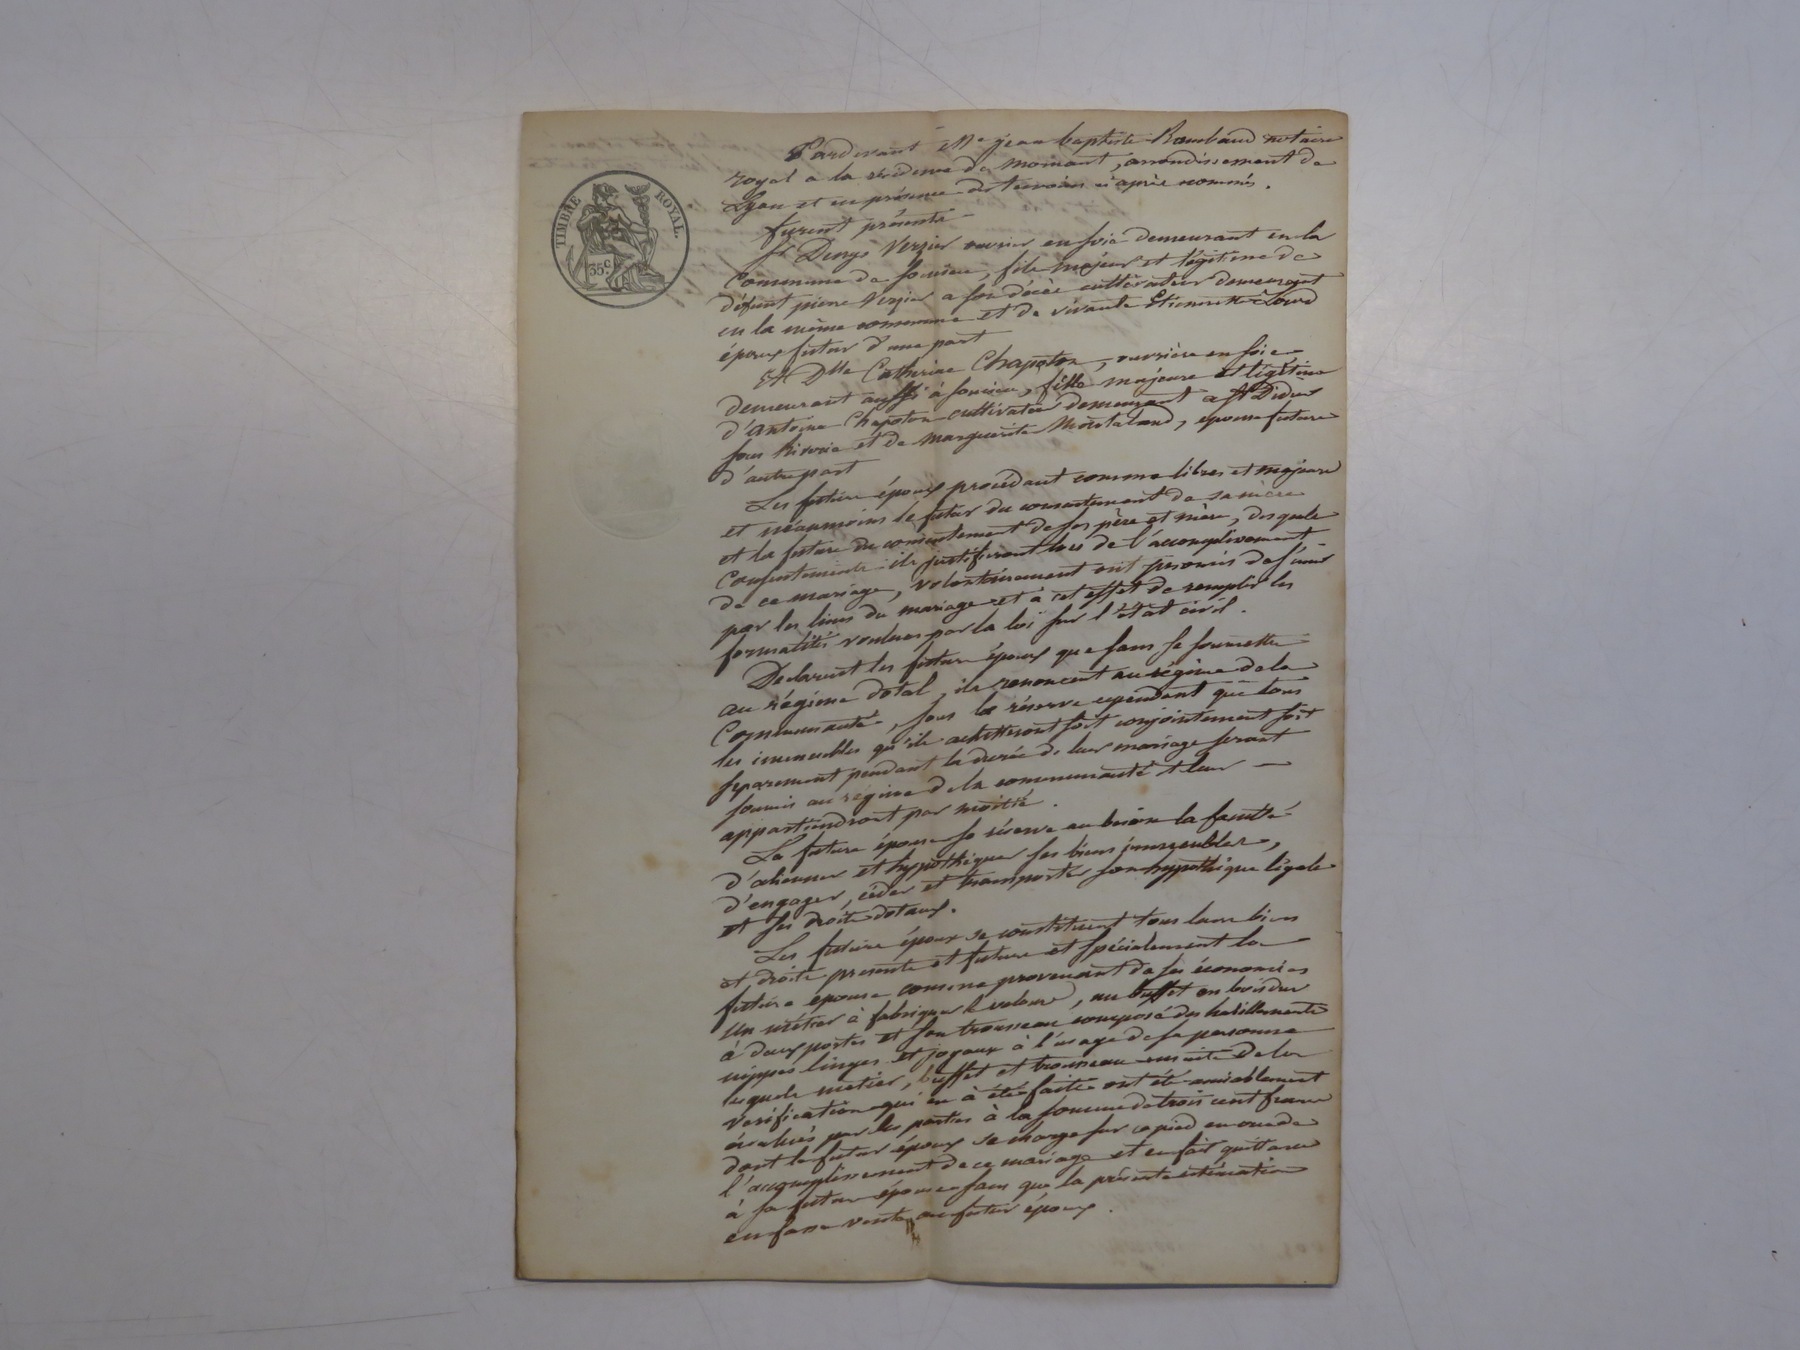 TIMBRE ROYAL.
35 c.
Pardevant Me jean baptiste Rambaud notaire
royal a la résidence de mornant, arrondissement de
Lyon et en présence des temoins ci après nommés.
furent présents
Sr Denys Verzier ouvrier en soie demeurant en la
Commune de Soucieu, fils majeur et légitime de
défunt pierre Verzier a son décès cultivateur demeurant
en la même commune et de vivante Etiennette
époux futur d'une part
Et Dlle Catherine Chapoton, ouvrière en soie
demeurant aussi à Soucieu, fille majeure et légitime
d'Antoine Chapoton cultivateur demeurant a St Didier
sous Riverie et de marguerite Montaland, epouse future
d'autre part
Les futurs époux procédant comme libres et majeurs
et néanmoins le futur du consentement de sa mère
et la future du consentement de ses père et mère, desquels
Consentements ils justifieront lors de l'accomplissement
de ce mariage, volontairement ont promis de s'unir
par les liens du mariage et à cet effet de remplir les
formalités voulues par la loi sur l'état civil.
Declarent les futurs époux que sans se soumettre
au régime dotal, ils renoncent au régime de la
Communauté, sous la réserve cependant que tous
les immeubles qu'ils achetteront soit conjointement soit
séparement pendant la durée de leur mariage seront
soumis au régime de la communauté et leur
appartiendront par moitié.
La future épouse se réserve au besoin la faculté
d'aliener et hypothéquer ses biens immeubles,
d'engager, céder et transporter son hypothèque légale
et ses droits dotaux.
Les futurs époux se constituent tous leurs biens
et droits présents et futurs et spécialement la
future épouse comme provenant de ses économies
un métier à fabriquer le velours, un buffet en bois dur
à deux portes et son trousseau composé des habillements
nippes linges et joyaux à l'usage de sa personne
lesquels metier, buffet et trousseau ensuite de la
vérification qui en à été faite ont été amiablement
évalués par les parties à la somme de trois cent francs
dont le futur époux se charge sur ce pied en vue de
l'accomplissement de ce mariage et en fait quittance
à sa future épouse sans que la présente estimation
en fasse vente au futur époux.